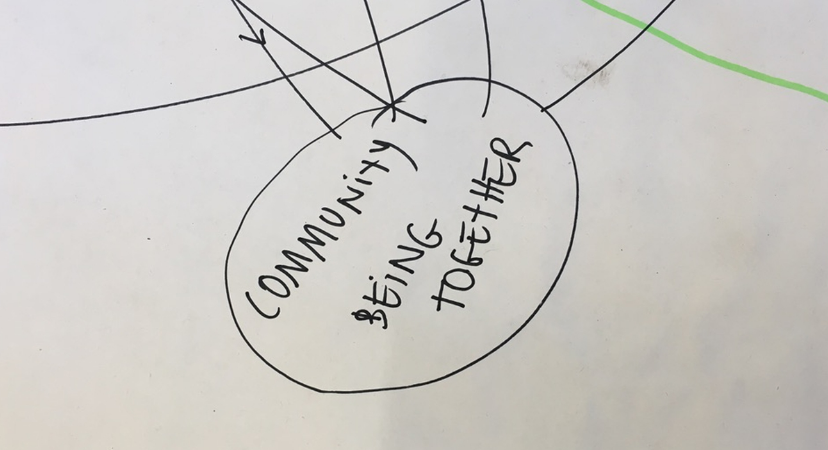 COMMUNITY
BEING
TOGETHER